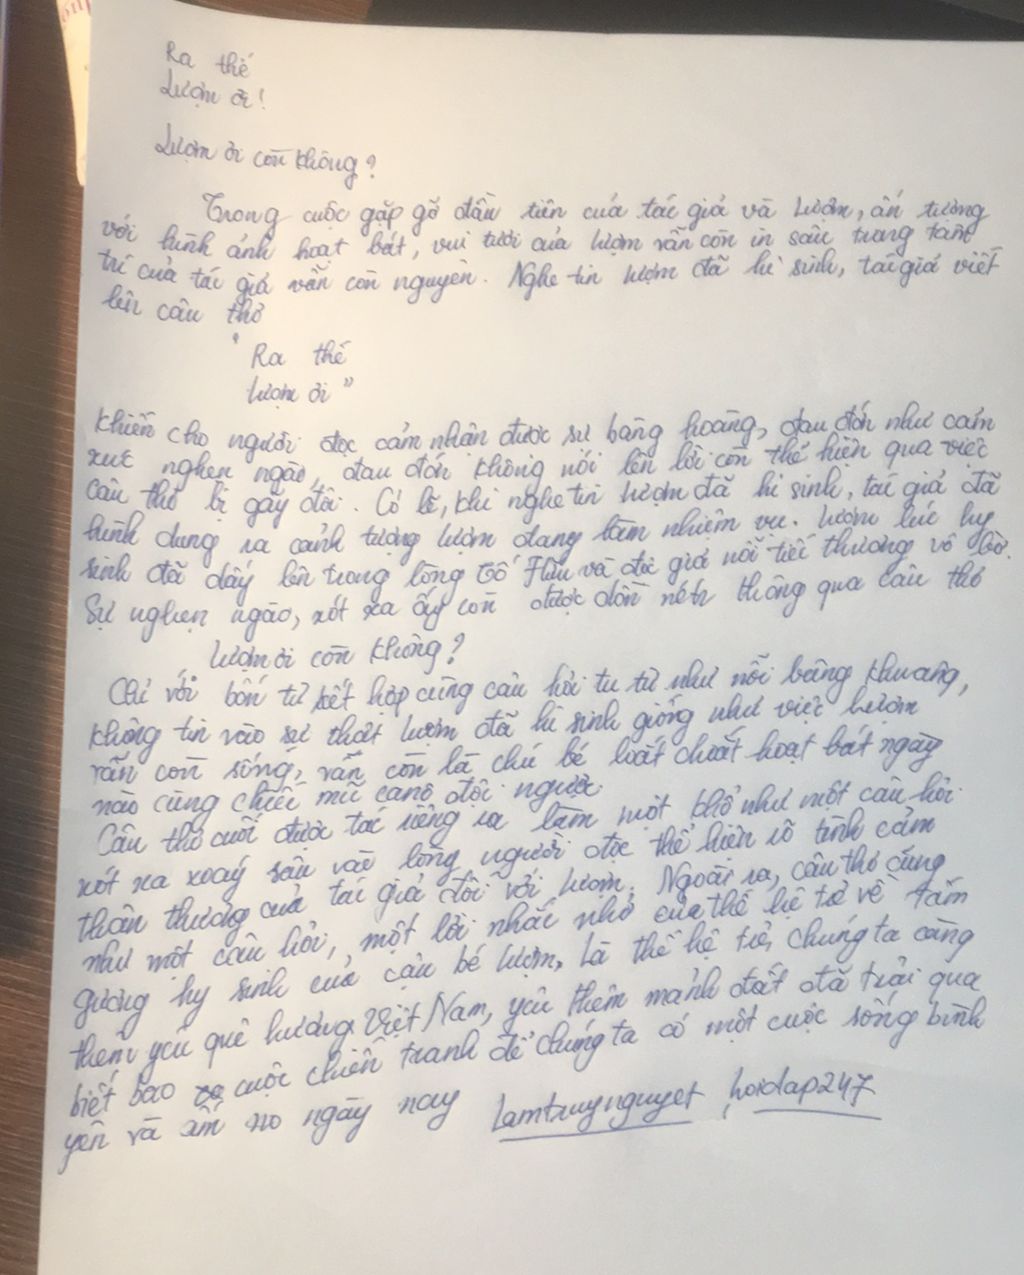 Ra thế
Lượm ơi!
Lượm ơi còn không?
Trong cuộc gặp gỡ đầu tiên của tác giả và Lượm, ấn tượng
với hình ảnh hoạt bát, vui tươi của lượm vẫn còn in sâu trong tâm
trí của tác giả vẫn còn nguyên. Nghe tin lượm đã hi sinh, tác giả viết
lên câu thơ
"Ra thế
lượm ơi"
khiến cho người đọc cảm nhận được sự bàng hoàng, đau đớn như cảm
xúc nghẹn ngào, đau đớn không nói lên lời còn thể hiện qua việc
câu thơ bị gãy đôi. Có lẽ, khi nghe tin lượm đã hi sinh, tác giả đã
hình dung ra cảnh tượng lượm đang làm nhiệm vụ. Lượm lúc hy
sinh đã dấy lên trong lòng Tố Hữu và độc giả nỗi tiếc thương vô bờ.
Sự nghẹn ngào, xót xa ấy còn được dồn nén thông qua câu thơ
Lượm ơi còn không?
Chỉ với bốn từ kết hợp cùng câu hỏi tu từ như nỗi bâng khuâng,
không tin vào sự thật lượm đã hi sinh giống như việc lượm
vẫn còn sống, vẫn còn là chú bé loắt choắt hoạt bát ngày
nào cùng chiếc mũ canô đội ngược.
Câu thơ cuối được tác riêng ra làm một khổ như một câu hỏi
xót xa xoáy sâu vào lòng người đọc thể hiện rõ tình cảm
thân thương của tác giả đối với lượm. Ngoài ra, câu thơ cũng
như một câu hỏi, một lời nhắc nhở của thế hệ trẻ về tấm
gương hy sinh của cậu bé lượm. Là thế hệ trẻ, chúng ta càng
thêm yêu quê hương Việt Nam, yêu thêm mảnh đất đã trải qua
biết bao cuộc chiến tranh để chúng ta có một cuộc sống bình
yên và ấm no ngày nay lamtuynguyet, hoidap247